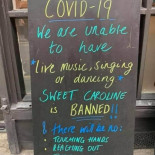 COVID-19
We are unable
to have
*live music, singing
or dancing*
SWEET CAROLINE
is BANNED!!
& there will be no:
• TOUCHING HANDS
• REACHING OUT